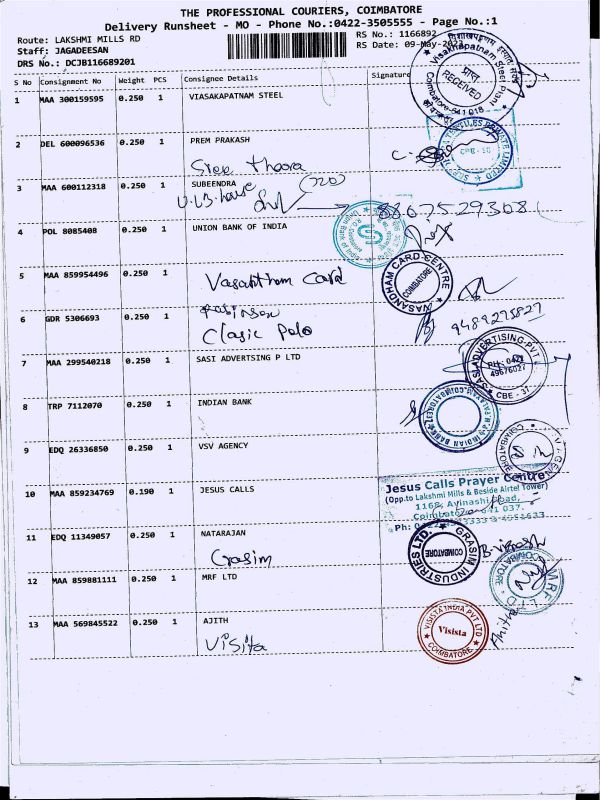 THE PROFESSIONAL COURIERS, COIMBATORE
Delivery Runsheet - MO - Phone No.:0422-3505555 - Page No.:1
Route: LAKSHMI MILLS RD
RS No.: 1166892
Staff: JAGADEESAN
RS Date: 09-May-2023
DRS No.: DCJB116689201
S No Consignment No Weight PCS Consignee Details Signature
1 MAA 300159595 0.250 1 VIASAKAPATNAM STEEL
Visakhapatnam Steel Plant
RECEIVED
Coimbatore-641 018
2 DEL 600096536 0.250 1 PREM PRAKASH
Sree Thaara
PRIVATE LIMITED
CBE
3 MAA 600112318 0.250 1 SUBEENDRA
8807529308
4 POL 8085408 0.250 1 UNION BANK OF INDIA
5 MAA 859954496 0.250 1
Vasantham Card
VASANDHAM CARD CENTRE
COIMBATORE
6 GDR 5306693 0.250 1
Clasic Polo
7 MAA 299540218 0.250 1 SASI ADVERTSING P LTD
SASI ADVERTISING PVT.
PH: 0422
49676027
CBE - 37
8 TRP 7112070 0.250 1 INDIAN BANK
INDIAN BANK
9 EDQ 26336850 0.250 1 VSV AGENCY
COIMBATORE
10 MAA 859234769 0.190 1 JESUS CALLS
Jesus Calls Prayer Centre
(Opp.to Lakshmi Mills & Beside Airtel Tower)
1168, Avinashi Road,
Coimbatore 641 037.
11 EDQ 11349057 0.250 1 NATARAJAN
Grasim
GRASIM INDUSTRIES LTD.
COIMBATORE
12 MAA 859881111 0.250 1 MRF LTD
MRF LTD
COIMBATORE
13 MAA 569845522 0.250 1 AJITH
Visita
VISISTA INDIA PVT LTD
Visista
COIMBATORE